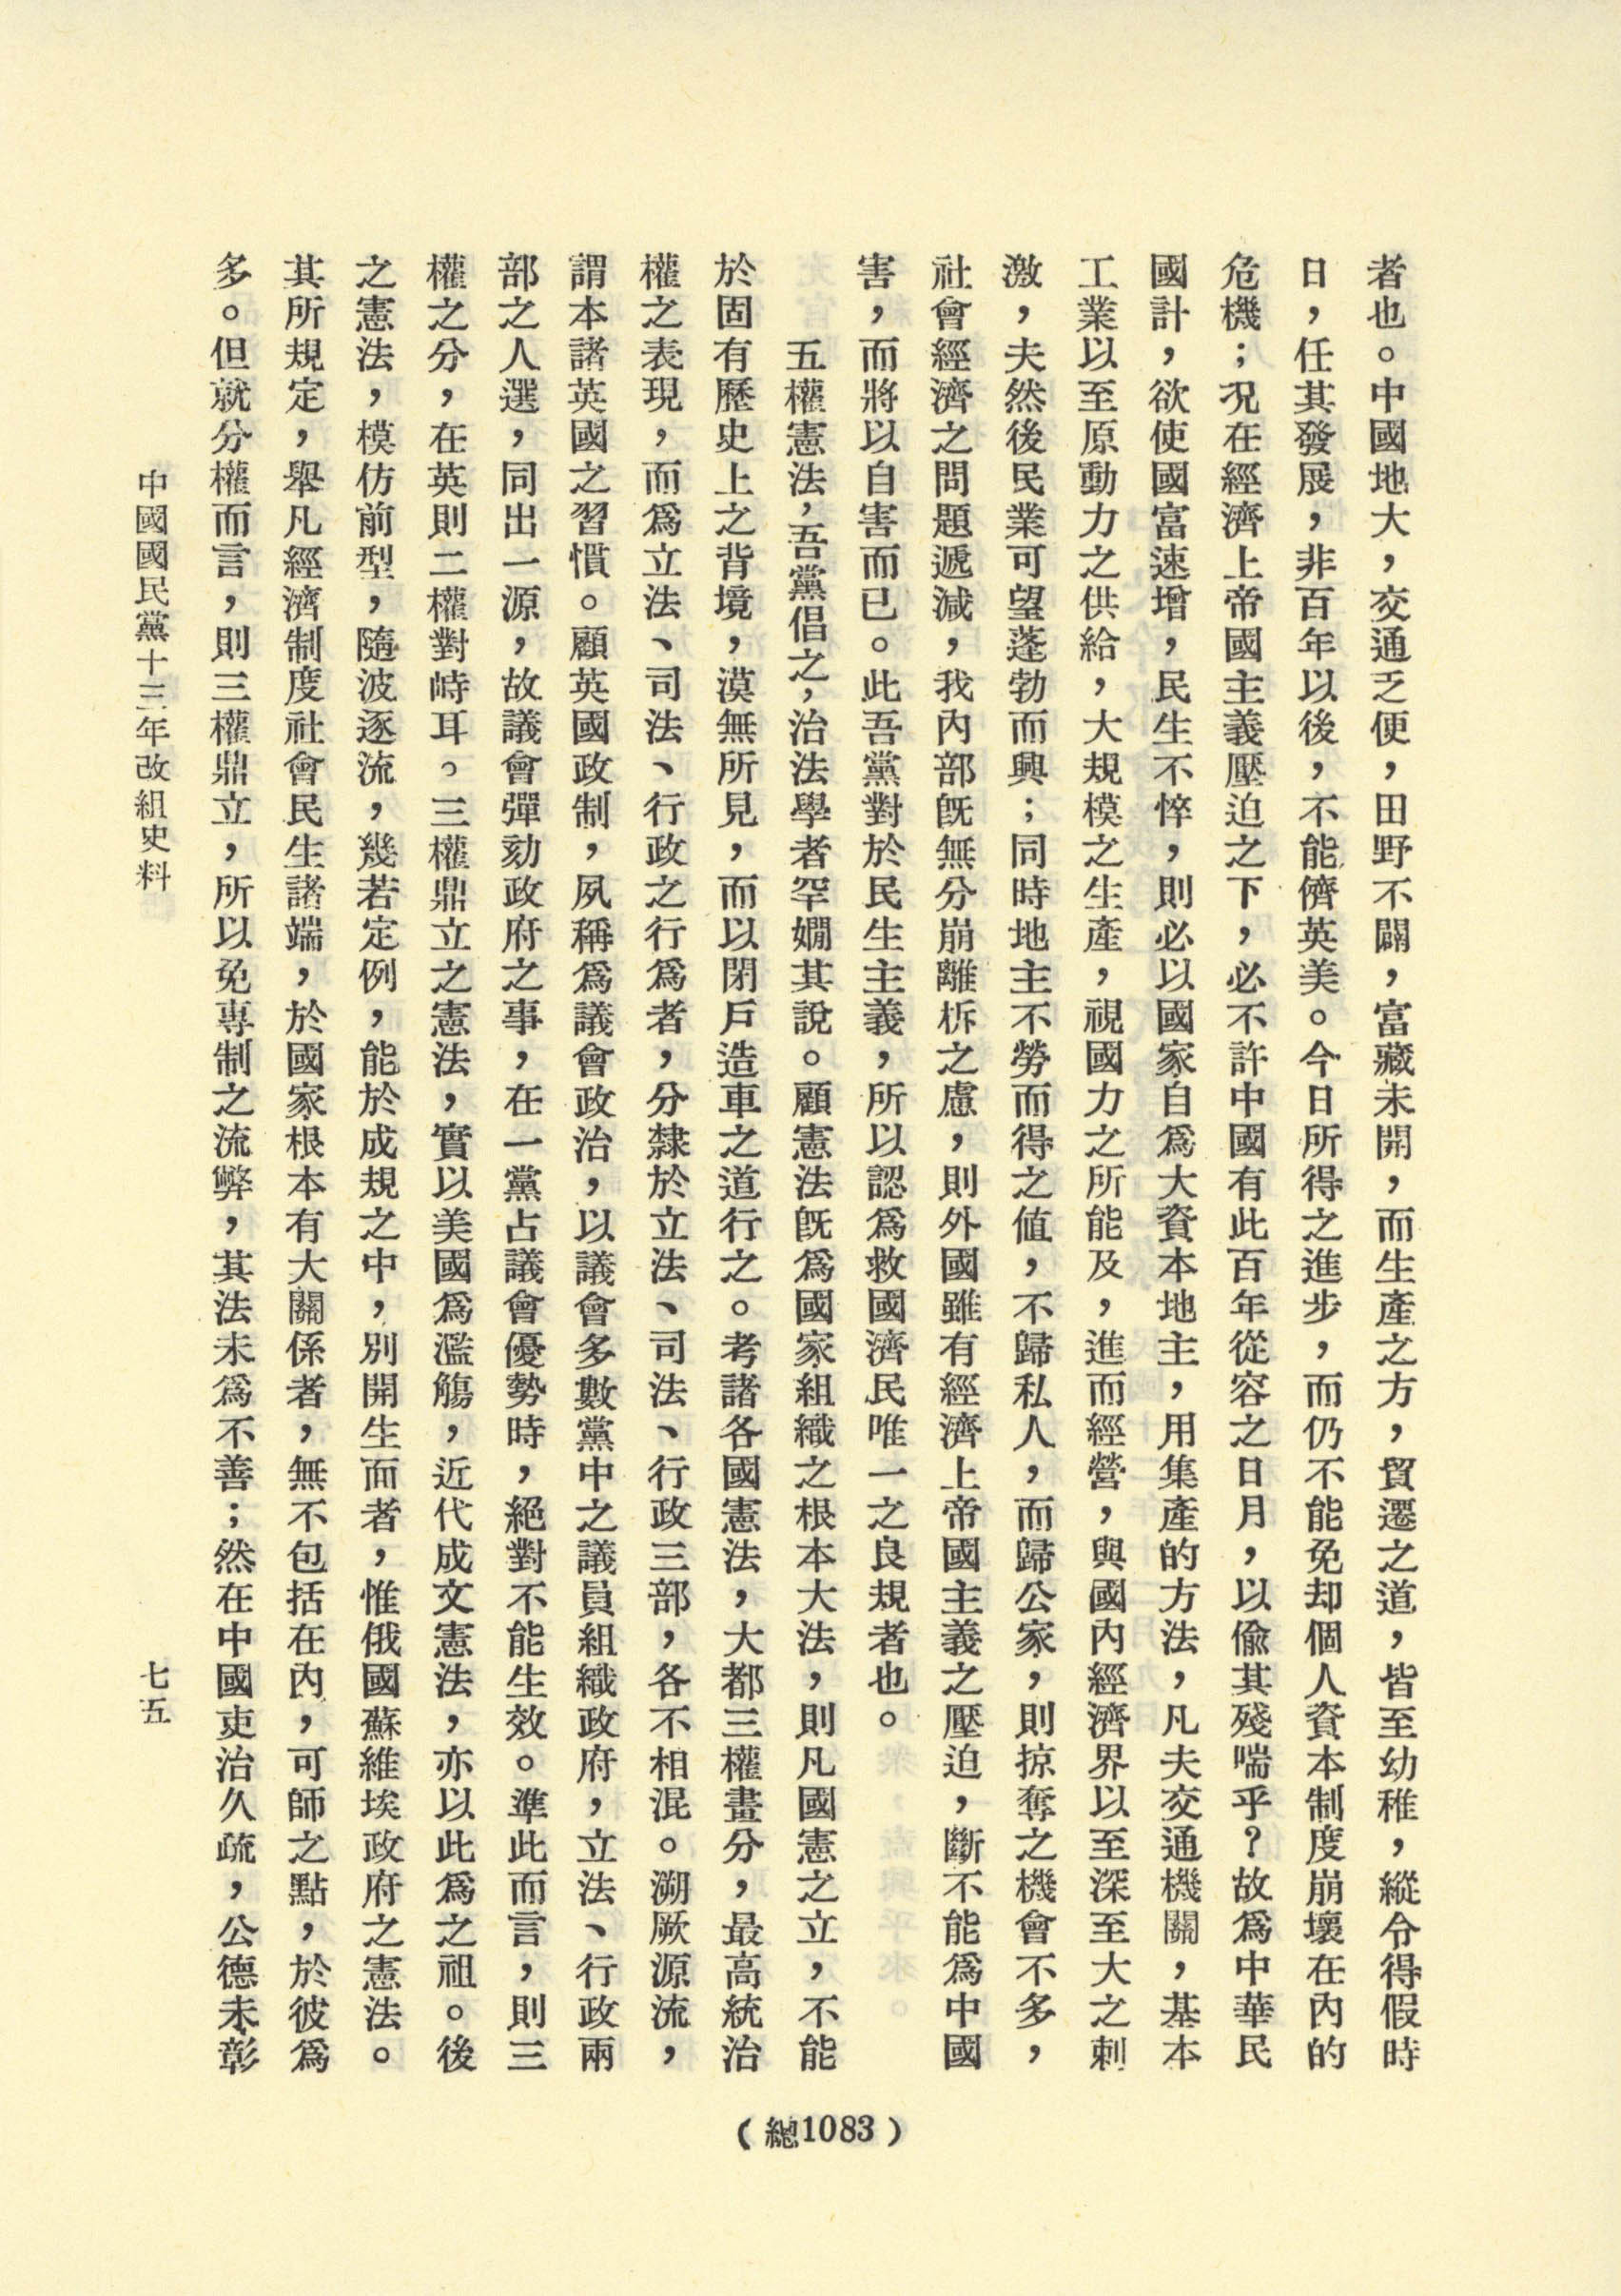 者也。中國地大，交通乏便，田野不闢，富藏未開，而生產之方，貿遷之道，皆至幼稚，縱令得假時
日，任其發展，非百年以後，不能儕英美。今日所得之進步，而仍不能免却個人資本制度崩壞在內的
危機；況在經濟上帝國主義壓迫之下，必不許中國有此百年從容之日月，以偷其殘喘乎？故爲中華民
國計，欲使國富速增，民生不悴，則必以國家自爲大資本地主，用集產的方法，凡夫交通機關，基本
工業以至原動力之供給，大規模之生產，視國力之所能及，進而經營，與國內經濟界以至深至大之刺
激，夫然後民業可望蓬勃而興；同時地主不勞而得之值，不歸私人，而歸公家，則掠奪之機會不多，
社會經濟之問題遞減，我內部旣無分崩離析之慮，則外國雖有經濟上帝國主義之壓迫，斷不能爲中國
害，而將以自害而已。此吾黨對於民生主義，所以認爲救國濟民唯一之良規者也。
五權憲法，吾黨倡之，治法學者罕嫺其說。顧憲法旣爲國家組織之根本大法，則凡國憲之立，不能
於固有歷史上之背境，漠無所見，而以閉戶造車之道行之。考諸各國憲法，大都三權畫分，最高統治
權之表現，而爲立法、司法、行政之行爲者，分隸於立法、司法、行政三部，各不相混。溯厥源流，
謂本諸英國之習慣。顧英國政制，夙稱爲議會政治，以議會多數黨中之議員組織政府，立法、行政兩
部之人選，同出一源，故議會彈劾政府之事，在一黨占議會優勢時，絕對不能生效。準此而言，則三
權之分，在英則二權對峙耳。三權鼎立之憲法，實以美國爲濫觴，近代成文憲法，亦以此爲之祖。後
之憲法，模仿前型，隨波逐流，幾若定例，能於成規之中，別開生面者，惟俄國蘇維埃政府之憲法。
其所規定，舉凡經濟制度社會民生諸端，於國家根本有大關係者，無不包括在內，可師之點，於彼爲
多。但就分權而言，則三權鼎立，所以免專制之流弊，其法未爲不善；然在中國吏治久疏，公德未彰
中國國民黨十三年改組史料
七五
（總1083）